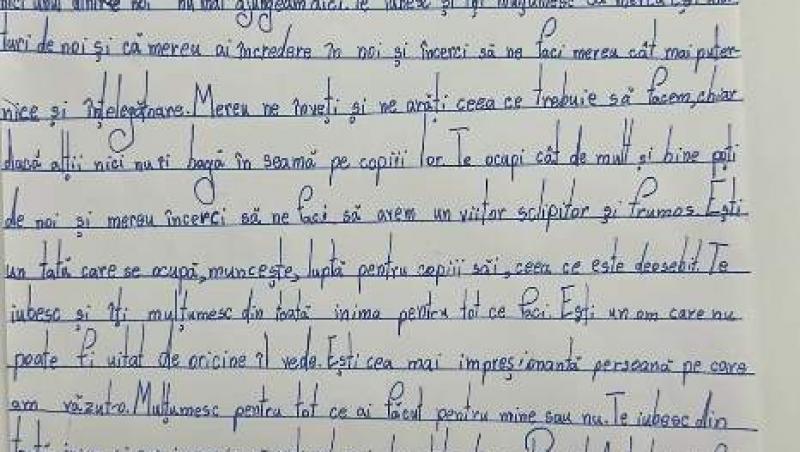 nici unul dintre noi nu mai ajungeam aici. Te iubesc și îți mulțumesc că mereu ești
turi de noi și că mereu ai încredere în noi și încerci să ne faci mereu cât mai puter-
nice și înțelegătoare. Mereu ne înveți și ne arăți ceea ce trebuie să facem, chiar
dacă alții nici nu îi bagă în seamă pe copiii lor. Te ocupi cât de mult și bine poți
de noi și mereu încerci să ne faci să avem un viitor sclipitor și frumos. Ești
un tată care se ocupă, muncește, luptă pentru copiii săi, ceea ce este deosebit. Te
iubesc și îți mulțumesc din toată inima pentru tot ce faci. Ești un om care nu
poate fi uitat de oricine îl vede. Ești cea mai impresionantă persoană pe care
am văzut-o. Mulțumesc pentru tot ce ai făcut pentru mine sau nu. Te iubesc din